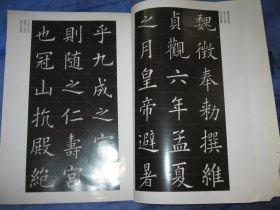 魏徵奉勅撰維
貞觀六年孟夏
之月皇帝避暑
乎九成之宮此
則隨之仁壽宮
也冠山抗殿絕